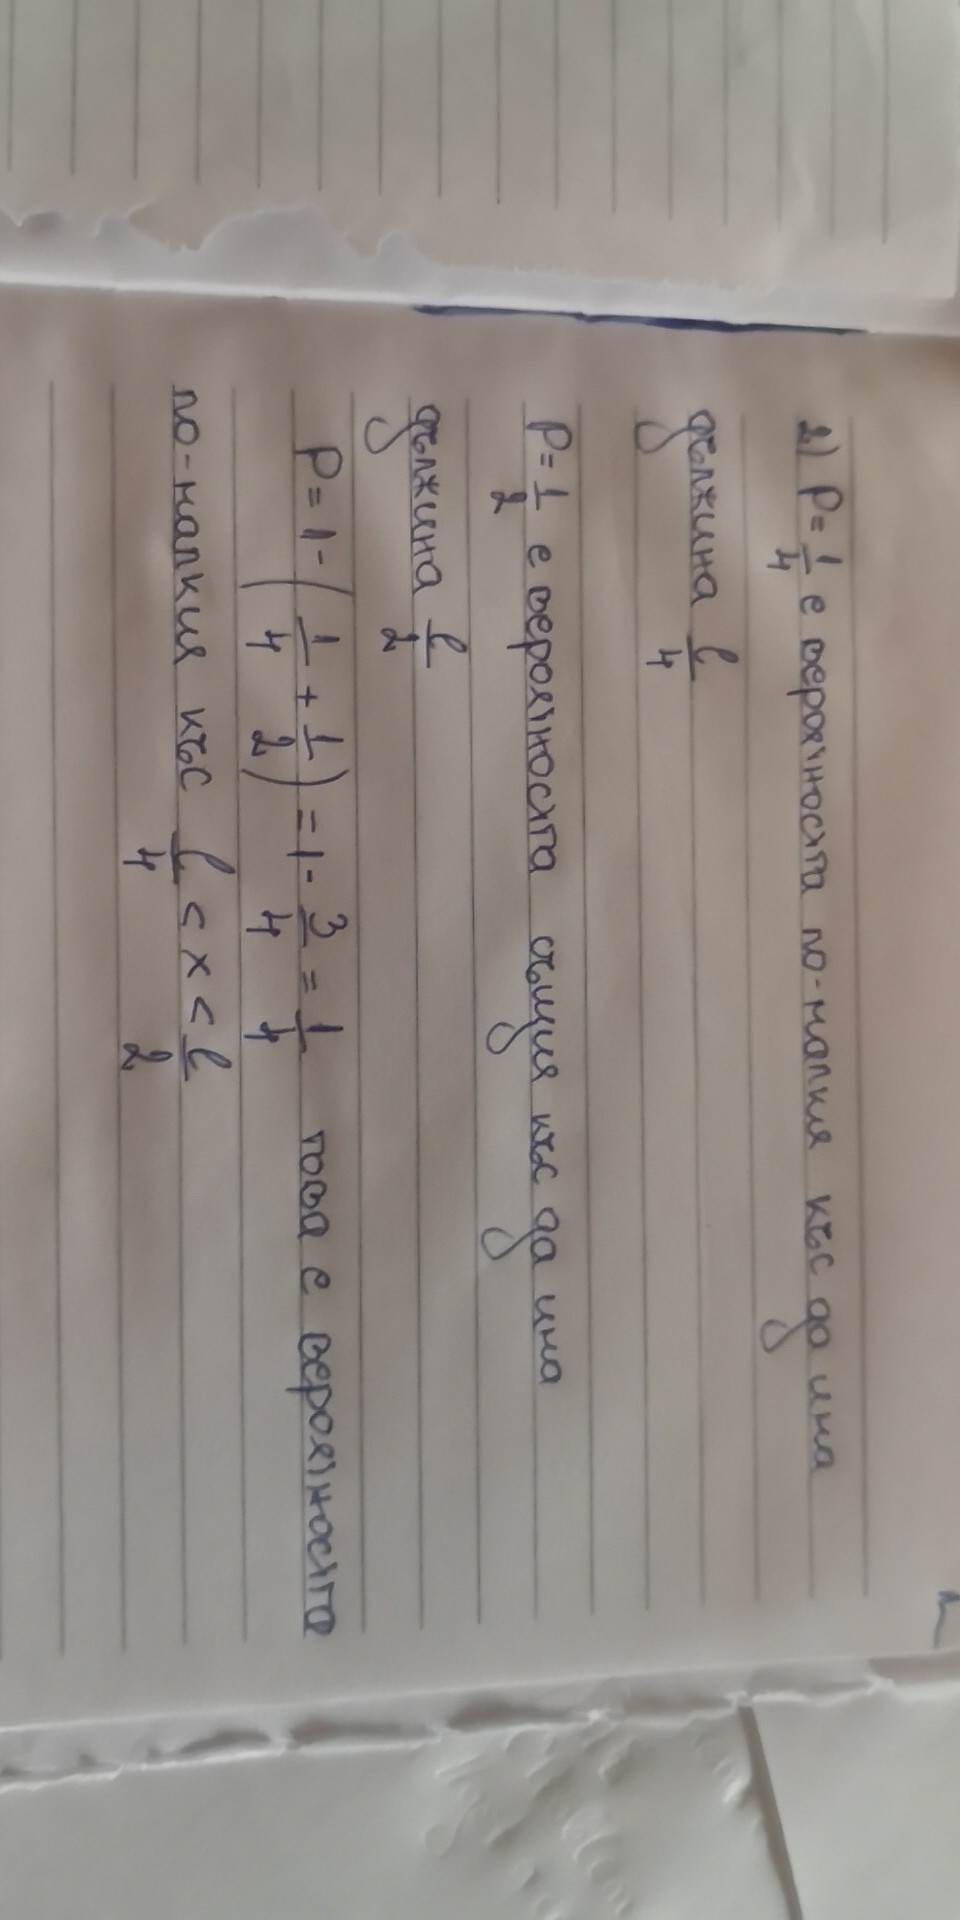 2) P = 1/4 е вероятността по-малкия къс да има
дължина l/4
P = 1/2 е вероятността същия къс да има
дължина l/2
P = 1 - (1/4 + 1/2) = 1 - 3/4 = 1/4 това е вероятността
по-малкия къс l/4 < x < l/2